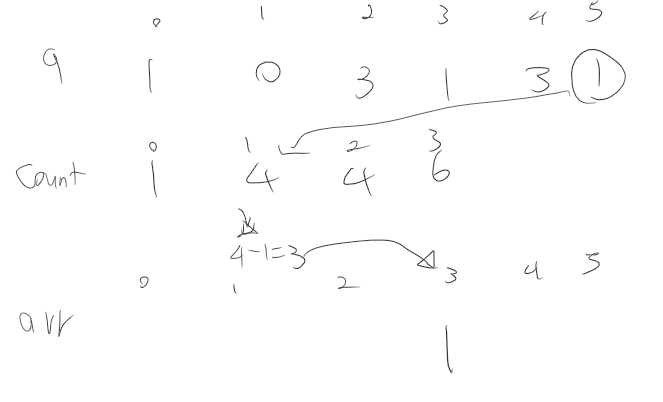 0 1 2 3 4 5
a 1 0 3 1 3 1
0 1 2 3
Count 1 4 4 6
4-1=3
0 1 2 3 4 5
arr 1